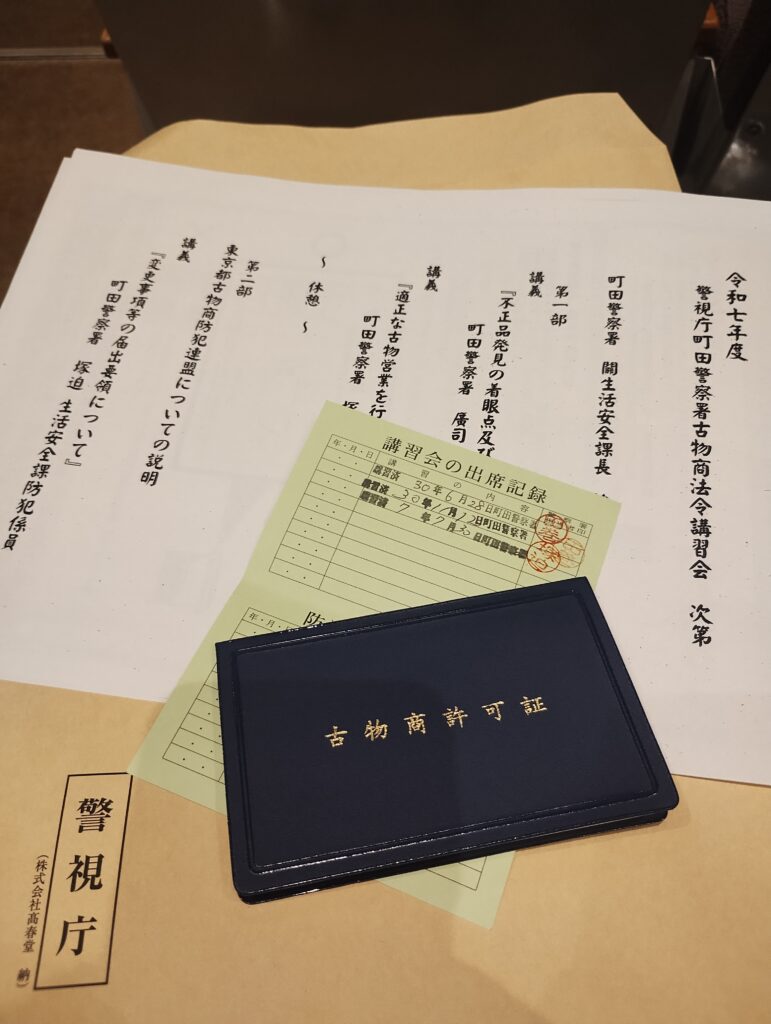 令和七年度
警視庁町田警察署古物商法令講習会 次第
町田警察署 關生活安全課長
第一部
講義
『不正品発見の着眼点及び
町田警察署 廣司
講義
『適正な古物営業を行
町田警察署 塚
~ 休憩 ~
第二部
東京都古物商防犯連盟についての説明
講義
『変更事項等の届出要領について』
町田警察署 塚迫 生活安全課防犯係員
講習会の出席記録
年・月・日
講習の内容
講習済 30年6月28日町田警察署
講習済 30年11月12日町田警察署
講習済 7年7月30日町田警察署
年・月・日
古物商許可証
警視庁
(株式会社髙春堂 納)